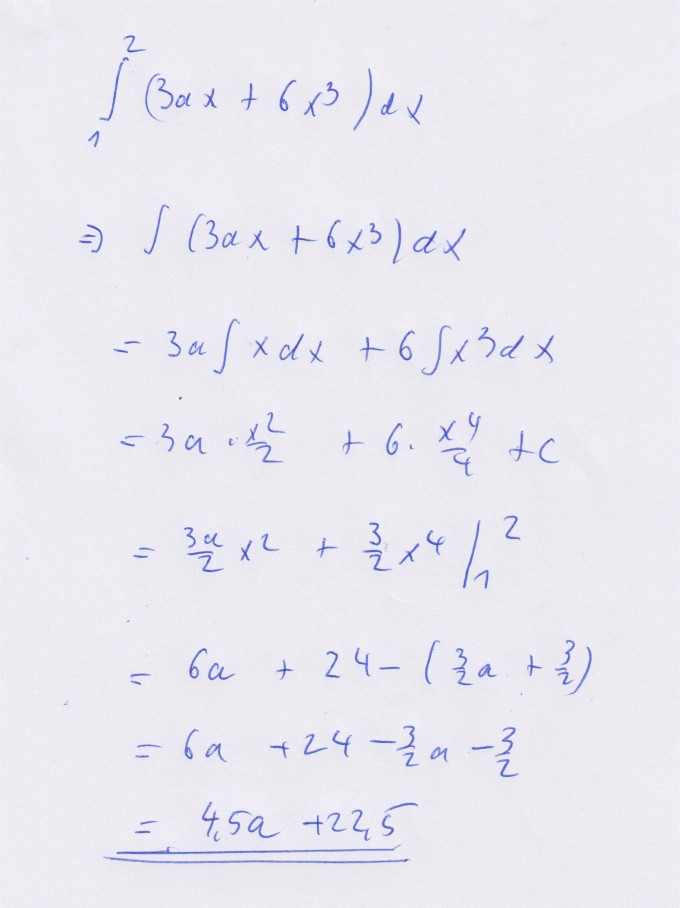 ∫₁² (3ax + 6x³) dx
⇒ ∫ (3ax + 6x³) dx
= 3a ∫ x dx + 6 ∫ x³ dx
= 3a · x²/2 + 6 · x⁴/4 + c
= 3a/2 x² + 3/2 x⁴ |₁²
= 6a + 24 - (3/2 a + 3/2)
= 6a + 24 - 3/2 a - 3/2
= 4,5a + 22,5